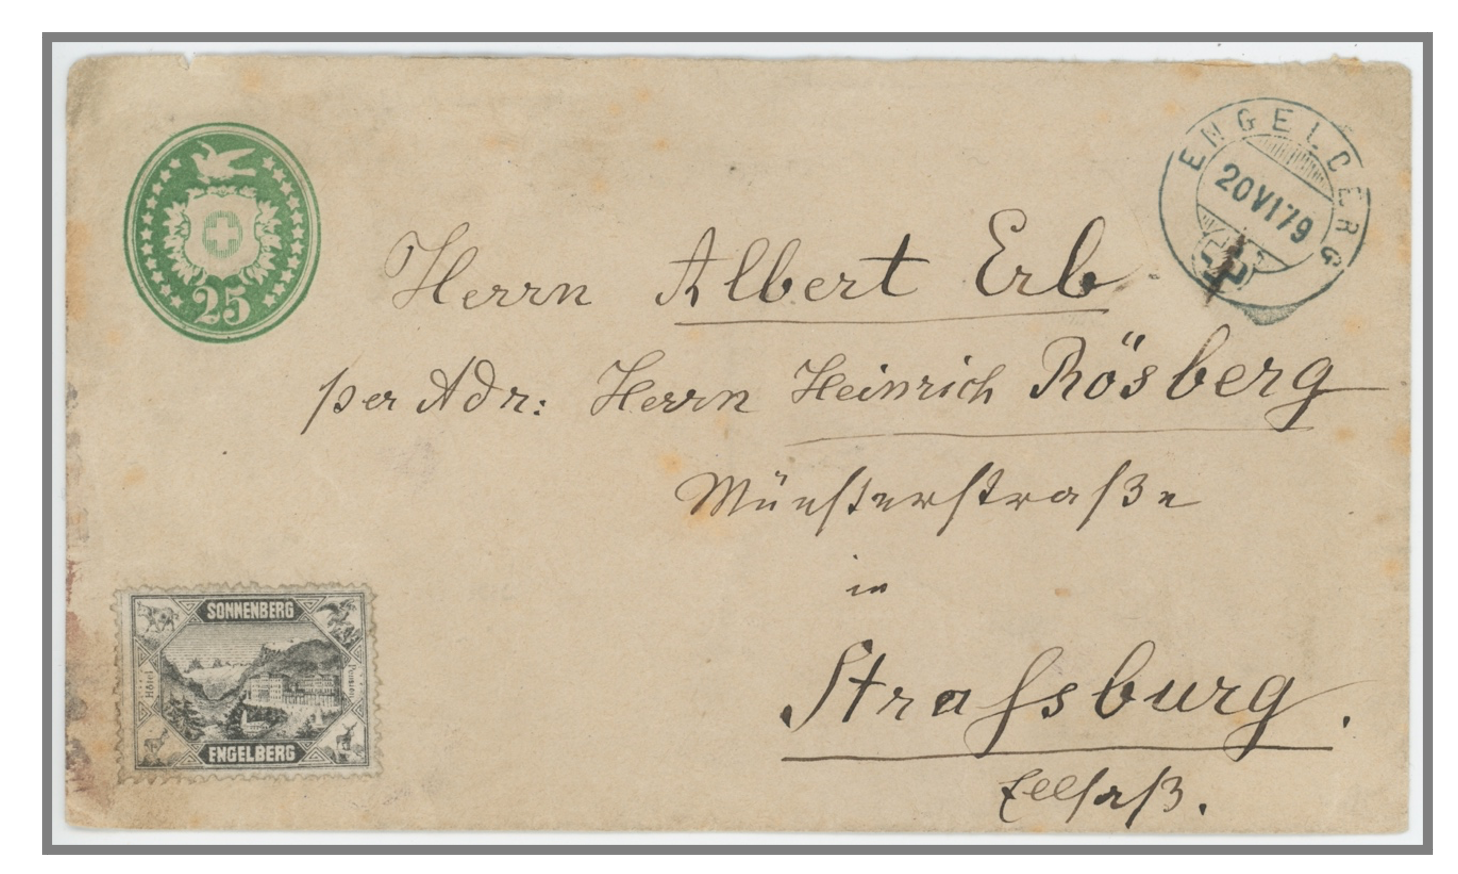 25
ENGELBERG
20 VI 79
Herrn Albert Erb
per Adr: Herrn Heinrich Rösberg
Münsterstraße
in
Strassburg.
Elsaß.
SONNENBERG
Hôtel
Pension
ENGELBERG